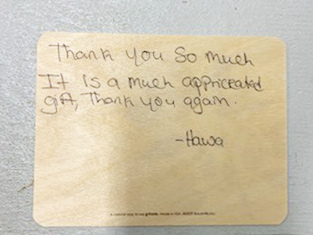 Thank you So much
It is a much appriceated
gift, Thank you again.
-Hawa